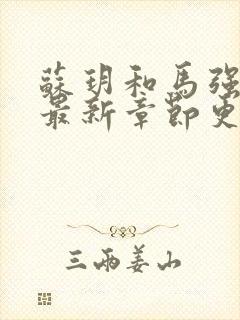 蘇玥和馬強
最新章節更
三兩姜山